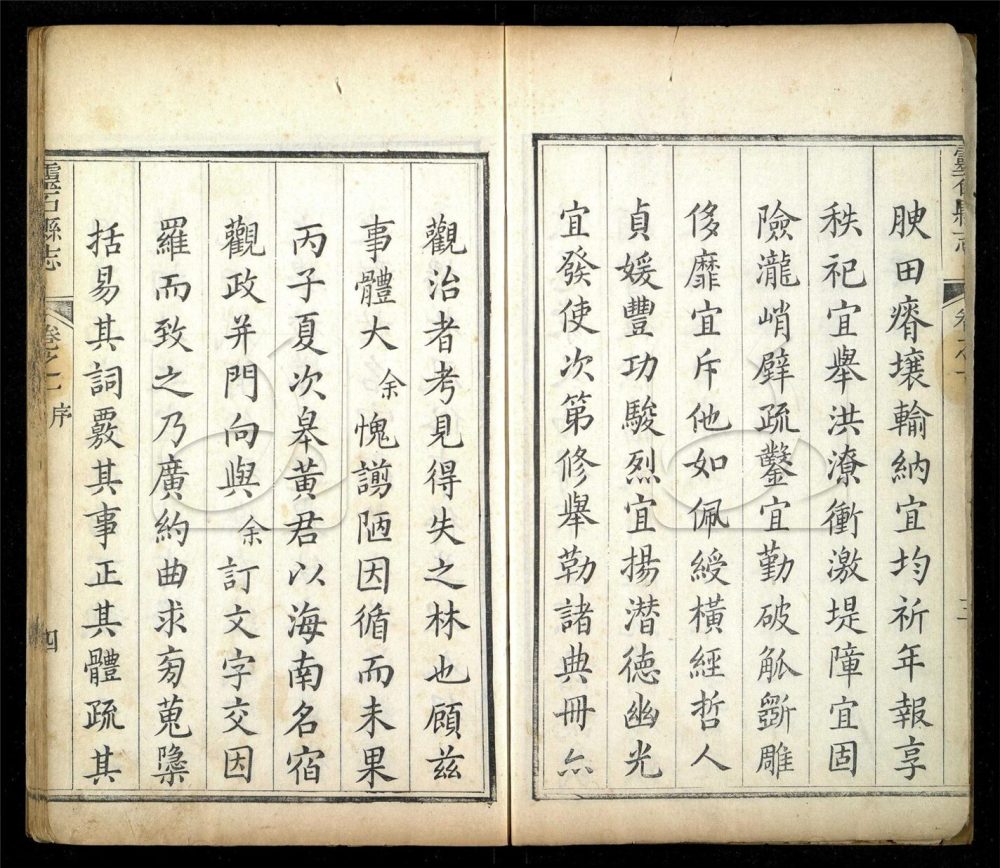 靈石縣志
卷之一
三
腴田瘠壤輸納宜均祈年報享
秩祀宜舉洪潦衝激堤障宜固
險瀧峭壁疏鑿宜勤破觚斵雕
侈靡宜斥他如佩綬橫經哲人
貞媛豐功駿烈宜揚潛德幽光
宜發使次第修舉勒諸典冊亦
觀治者考見得失之林也顧茲
事體大余愧謭陋因循而未果
丙子夏次皋黃君以海南名宿
觀政并門向與余訂文字交因
羅而致之乃廣約曲求旁蒐隱
括易其詞覈其事正其體疏其
靈石縣志
卷之一
序
四